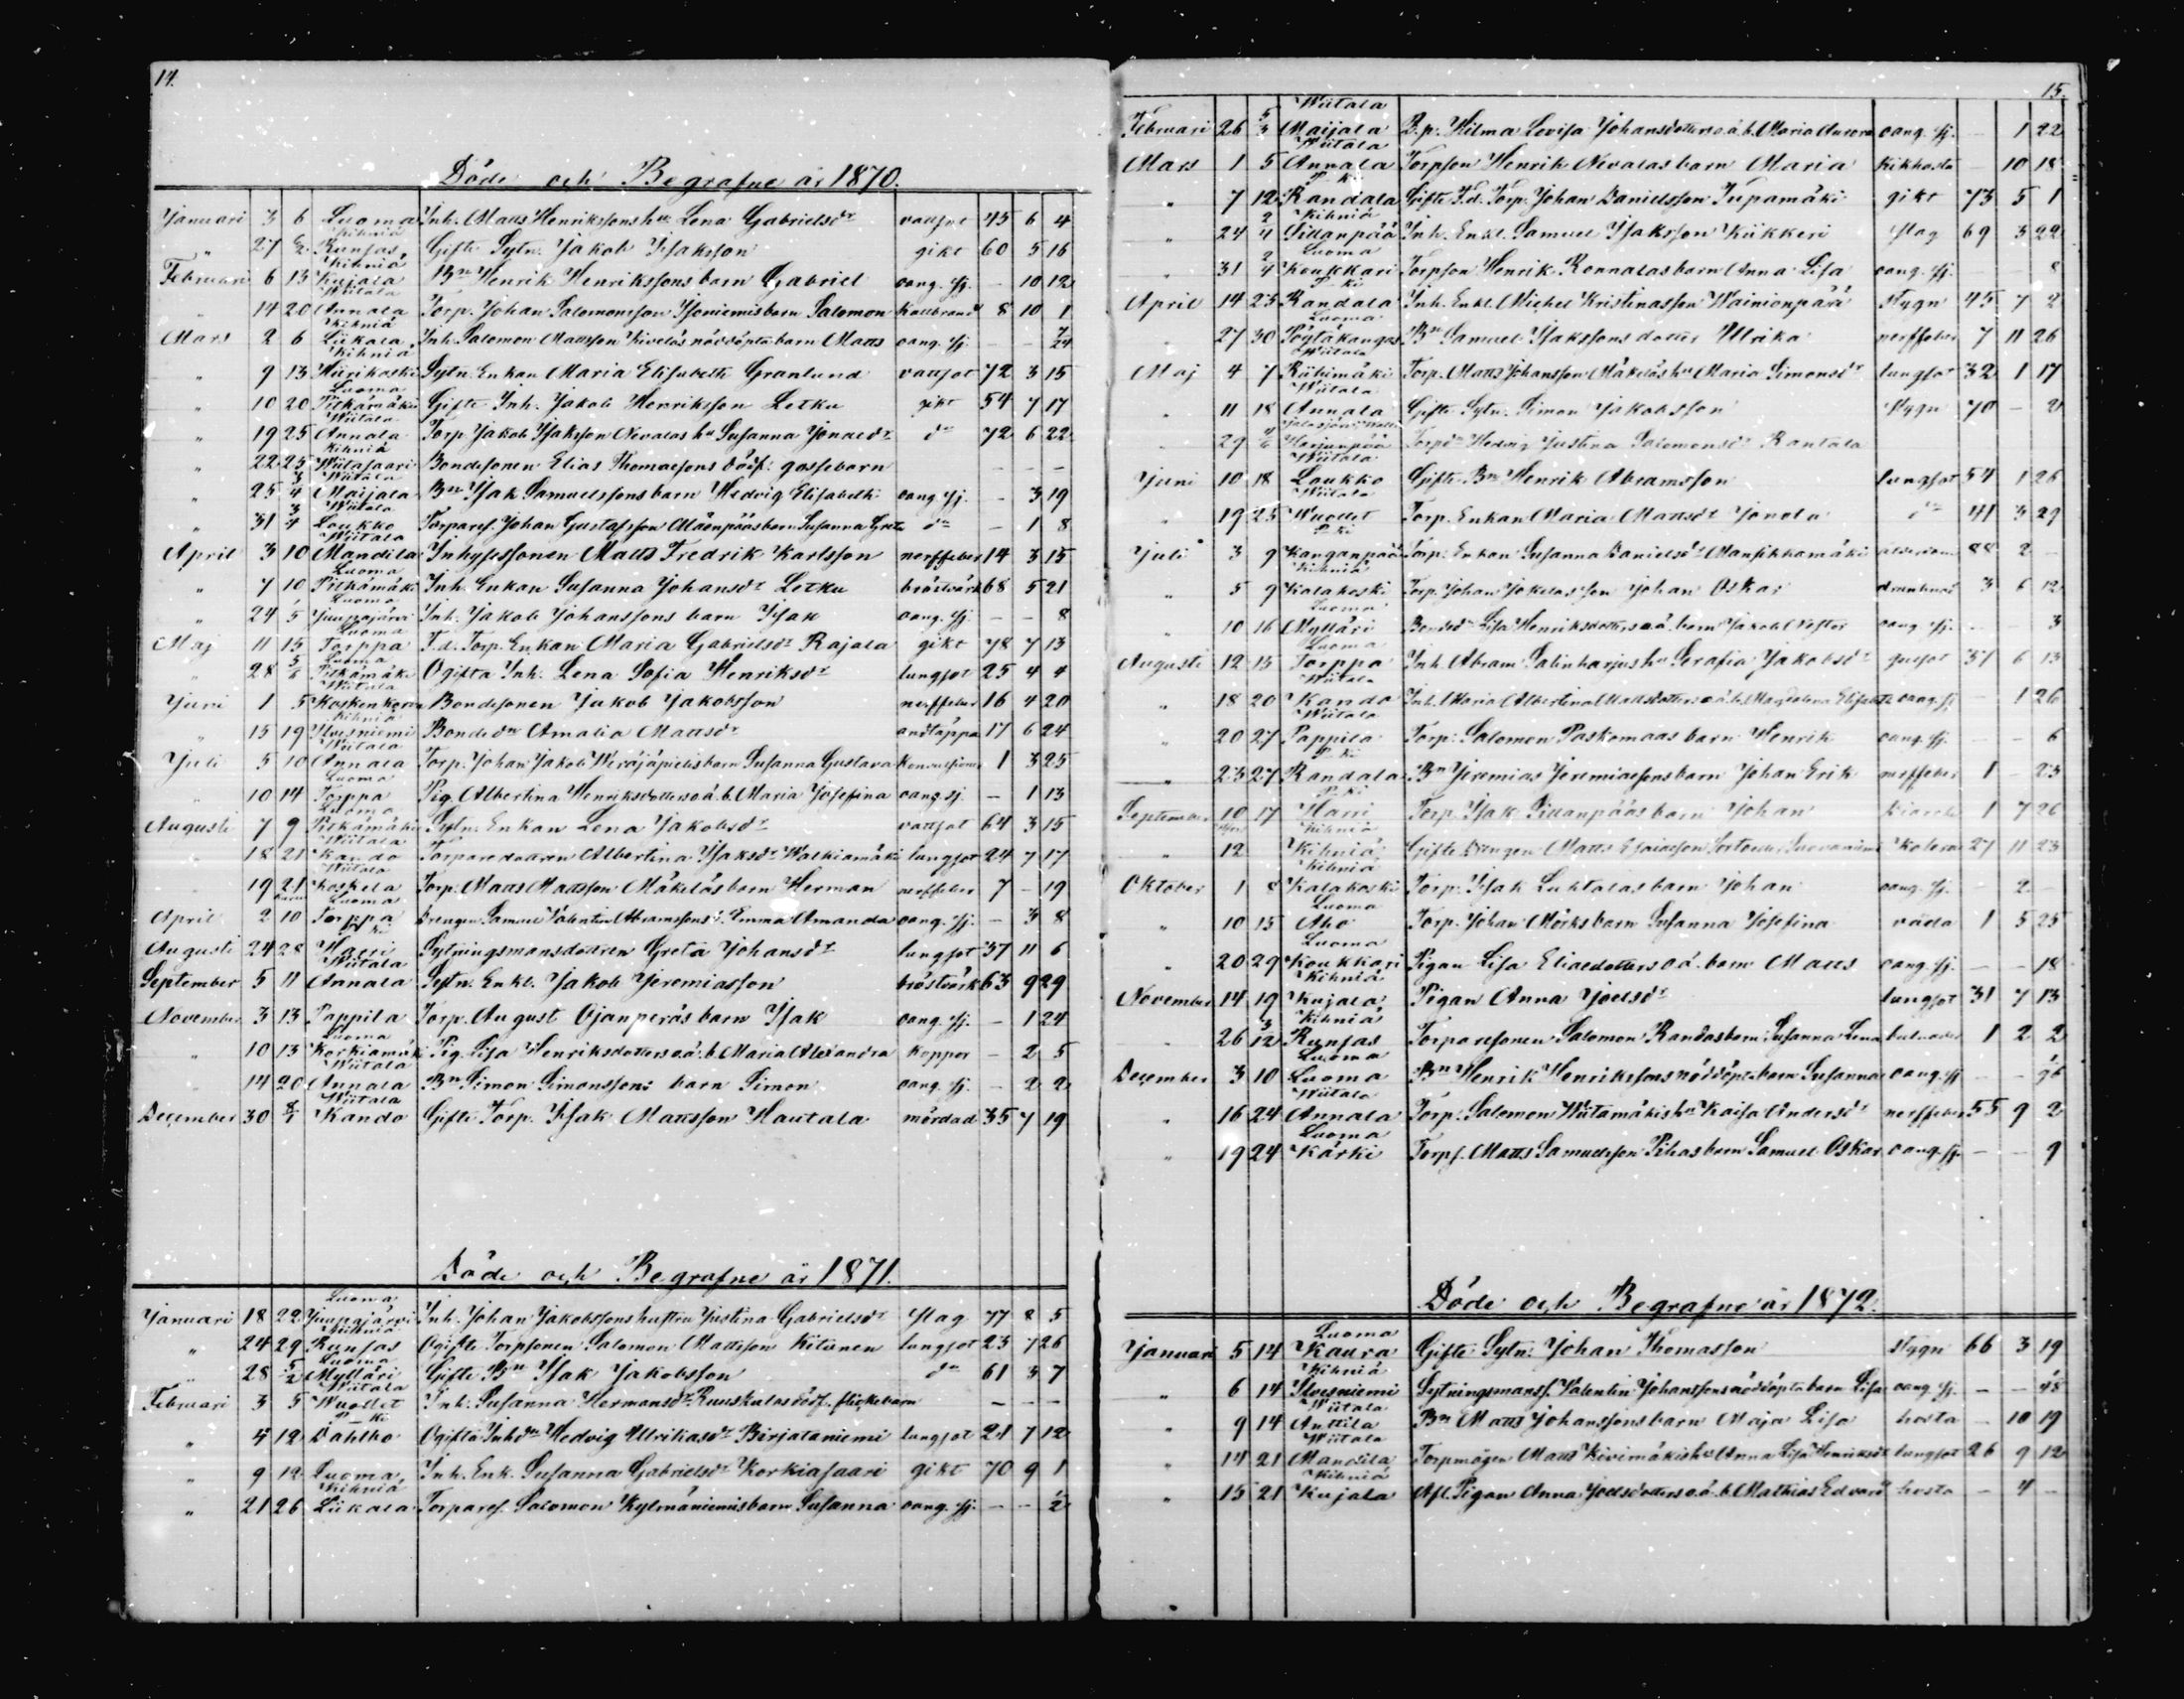 14.
Döde och Begrafne år 1870.
Januari 3 6 Luoma Inh. Matts Henrikssons hu. Lena Gabrielsdr vattsot 45 6 4
Kihniä
" 27 Runsas Gifte Sytn. Jakob Isaksson gikt 60 5 16
Kihniä
Februari 6 13 Kujala Bn Henrik Henrikssons barn Gabriel oang. sj. - 10 12
Wiitala
" 14 20 Annala Torp. Johan Salomonsson Isoniemis barn Salomon kallbrand 8 10 1
Kihniä
Mars 2 6 Liikala Inh. Salomon Mattsson Kiveläs nöddöpta barn Matts oang. sj. - - 7/24
Kihniä
" 9 13 Hiirikoski Sytn. Enkan Maria Elisabeth Granlund vattsot 72 3 15
Luoma
" 10 20 Pitkämäki Gifte Inh. Jakob Henriksson Letku gikt 54 7 17
Wiitala
" 19 25 Annala Torp. Jakob Isaksson Nevalas hu Susanna Jonaedr do 72 6 22
Kihniä
" 22 25 Wiitasaari Bondesonen Elias Thomaesons dödf. gossebarn - - -
Wiitala
" 25 3/4 Maijala Bn Isak Samuelssons barn Hedvig Elisabeth oang. sj. - 3 19
Wiitala
" 31 3/4 Loukko Torpares. Johan Gustafsson Mäenpääs barn Susanna Greta do - 1 8
Wiitala
April 3 10 Mandila Inhysessonen Matts Fredrik Karlsson nerffeber 14 3 15
Luoma
" 7 10 Pitkämäki Inh. Enkan Susanna Johansdr Letku bröstvärk 68 5 21
Luoma
" 24 Juupajärvi Inh. Jakob Johanssons barn Isak oang. sj. - - 8
Luoma
Maj 11 15 Torppa F.d. Torp. Enkan Maria Gabrielsdr Rajala gikt 78 7 13
Luoma
" 28 5/6 Pitkämäki Ogifta Inh. Lena Sofia Henriksdr lungsot 25 4 4
Wiitala
Juni 1 5 Koskenkorva Bondesonen Jakob Jakobsson nerffeber 16 4 20
Kihniä
" 15 19 Ilvesniemi Bondedn Amalia Mattsdr andtäppa 17 6 24
Wiitala
Juli 5 10 Annala Torp. Johan Jakob barn Susanna Gustava 1 3 25
Luoma
" 10 14 Torppa Pig. Albertina Henriksdotters o.ä. b. Maria Josefina oang. sj. - 1 13
Luoma
Augusti 7 9 Pitkämäki Sytn. Enkan Lena Jakobsdr vattsot 64 3 15
Wiitala
" 18 21 Kando Torparedottren Albertina Isaksdr Walkiamäki lungsot 24 7 17
Wiitala
" 19 21 Koskela Torp. Matts Mattsson Mäkeläs barn Herman nerffeber 7 - 19
Luoma
April 2 10 Torppa Drengen Samuel Valentin Abramssons d. Emma Amanda oang. sj. - 3 8
P ki
Augusti 24 28 Harri Sytningsmansdottren Greta Johansdr lungsot 37 11 6
Wiitala
September 5 11 Annala Sytn. Enkl. Jakob Jeremiasson bröstvärk 63 9 29
November 3 13 Pappila Torp. August Ojanperäs barn Isak oang. sj. - 1 24
Luoma
" 10 13 Korkiamäki Pig. Lisa Henriksdotters o.ä. b. Maria Alexandra koppor - 2 5
Wiitala
" 14 20 Annala Bn Simon Simonssons barn Simon oang. sj. - 2 2
Wiitala
December 30 Kando Gifte Torp. Isak Mattsson Hautala mördad 35 7 19
Döde och Begrafne år 1871.
Luoma
Januari 18 22 Juupajärvi Inh. Johan Jakobssons hustru Justina Gabrielsdr slag 77 8 5
Kihniä
" 24 29 Runsas Ogifte Torpsonen Salomon Mattsson Kitinen lungsot 23 7 26
Luoma
" 28 5/2 Mylläri Gifte Bn Isak Jakobsson do 61 3 7
Wiitala
Februari 3 5 Wuollet Inh. Susanna Hermansdr Ruuskalas dödf. flickebarn - - -
P-ki
" 4 12 Dahlbo Ogifta Inhdn Hedvig Ulrikasdr Birjataniemi lungsot 21 7 12
" 9 12 Luoma Inh. Enk. Susanna Gabrielsdr Korkiasaari gikt 70 9 1
Kihniä
" 21 26 Liikala Torpares. Salomon Kylmäniemis barn Susanna oang. sj. - - 1/2
15.
Wiitala
Februari 26 5/3 Maijala B.p. Hilma Lovisa Johansdotters o.ä. b. Maria Aurora oang. sj. - 1 22
Wiitala
Mars 1 5 Annala Torpson Henrik Nevalas barn Maria kikhosta - 10 18
P ki
" 7 12 Randala Gifte F.d. Torp. Johan Danielsson Jupamäki gikt 73 5 1
Kihniä
" 24 2/4 Sidanpää Inh. Enkl. Samuel Isaksson Kiikkeri slag 69 3 22
Luoma
" 31 2/4 Koukkari Torpson Henrik Ronnalas barn Anna Lisa oang. sj. - - 8
P ki
April 14 23 Randala Inh. Enkl. Michel Kristinasson Wainionpää stygn 45 7 2
Luoma
" 27 30 Pöytäkangas Bn Samuel Isakssons dotter Ulrika nerffeber 7 11 26
Wiitala
Maj 4 7 Riihimäki Torp. Matts Johansson Mäkeläs hu Maria Simonsdr lungsot 32 1 17
Wiitala
" 11 18 Annala Gifte Sytn. Simon Jakobsson stygn 70 - 2
" 29 Harjunpää Torpdn Hedvig Justina Salomonsdr Rantala
Wiitala
Juni 10 18 Loukko Gifte Bn Henrik Abramsson lungsot 54 1 26
Wiitala
" 19 25 Wuollet Torp. Enkan Maria Mattsdr Jonola do 41 3 29
P ki
Juli 3 9 Kanganpää Torp. Enkan Susanna Danielsdr Mansikkamäki ålderdom 88 2 -
Kihniä
" 5 9 Kalakoski Torp. Johan Jokelas son Johan Oskar drunknad 3 6 12
Luoma
" 10 16 Mylläri Bondedn Lisa Henriksdotters o.ä. barn Jakob Nestor oang. sj. - - 3
Luoma
Augusti 12 15 Torppa Inh. Abram Salinharjus hu Serafia Jakobsdr 37 6 13
Wiitala
" 18 20 Kando Inh. Maria Albertina Mattsdotters o.ä. b. Magdalena Elisabeth oang. sj. - 1 26
Wiitala
" 20 27 Pappila Torp. Salomon Paskomaas barn Henrik oang. sj. - - 6
P ki
" 23 27 Randala Bn Jeremias Jeremiaessons barn Johan Erik nerffeber 1 - 23
P ki
September 10 17 Harri Torp. Isak Sidanpääs barn Johan 1 7 26
Kihniä
" 12 Kihniä Gifte Drengen Matts Esaiasson kolera 27 11 23
Kihniä
Oktober 1 8 Kalakoski Torp. Isak Luhtalas barn Johan oang. sj. - 2 -
Luoma
" 10 15 Aho Torp. Johan Mörks barn Susanna Josefina våda 1 5 25
Luoma
" 20 29 Koukkari Pigan Lisa Eliaedotters o.ä. barn Matts oang. sj. - - 18
Kihniä
November 14 19 Kujala Pigan Anna Joelsdr lungsot 31 7 13
Kihniä
" 26 3/12 Runsas Torparesonen Salomon Randas barn Susanna Lena 1 2 2
Luoma
December 3 10 Luoma Bn Henrik Henrikssons nöddöpta barn Susanna oang. sj. - -
Wiitala
" 16 24 Annala Torp. Salomon Wiitamäkis hu Kaisa Andersdr nerffeber 55 9 2
Luoma
" 19 24 Kärki Torps. Matts Samuelsson Pihas barn Samuel Oskar oang. sj. - - 9
Döde och Begrafne år 1872.
Luoma
Januari 5 14 Kaura Gifte Sytn. Johan Thomasson stygn 66 3 19
Kihniä
" 6 14 Ilvesniemi Sytningsmanss. Valentin Johanssons nöddöpta barn Lisa oang. sj. - -
Wiitala
" 9 14 Anttila Bn Matts Johanssons barn Maja Lisa hosta - 10 19
Wiitala
" 14 21 Mandila Torpmågen Matts Kivimäkis hu Anna Lisa Henriksdr lungsot 26 9 12
Kihniä
" 15 21 Kujala Afl. Pigan Anna Joelsdotters o.ä. b. Mathias Edvard hosta - 4 -